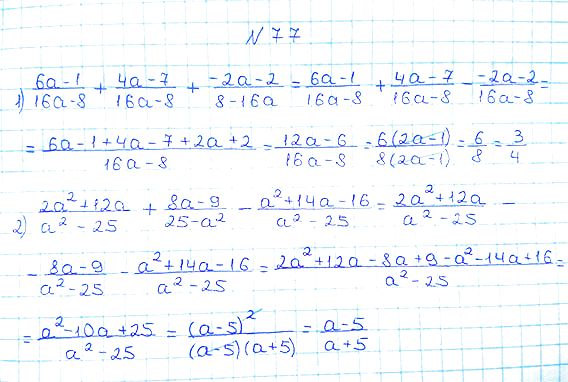 N 77
1) (6a-1)/(16a-8) + (4a-7)/(16a-8) + (-2a-2)/(8-16a) = (6a-1)/(16a-8) + (4a-7)/(16a-8) - (-2a-2)/(16a-8) =
= (6a-1+4a-7+2a+2)/(16a-8) = (12a-6)/(16a-8) = 6(2a-1)/8(2a-1) = 6/8 = 3/4
2) (2a²+12a)/(a²-25) + (8a-9)/(25-a²) - (a²+14a-16)/(a²-25) = (2a²+12a)/(a²-25) -
- (8a-9)/(a²-25) - (a²+14a-16)/(a²-25) = (2a²+12a-8a+9-a²-14a+16)/(a²-25) =
= (a²-10a+25)/(a²-25) = (a-5)²/(a-5)(a+5) = (a-5)/(a+5)